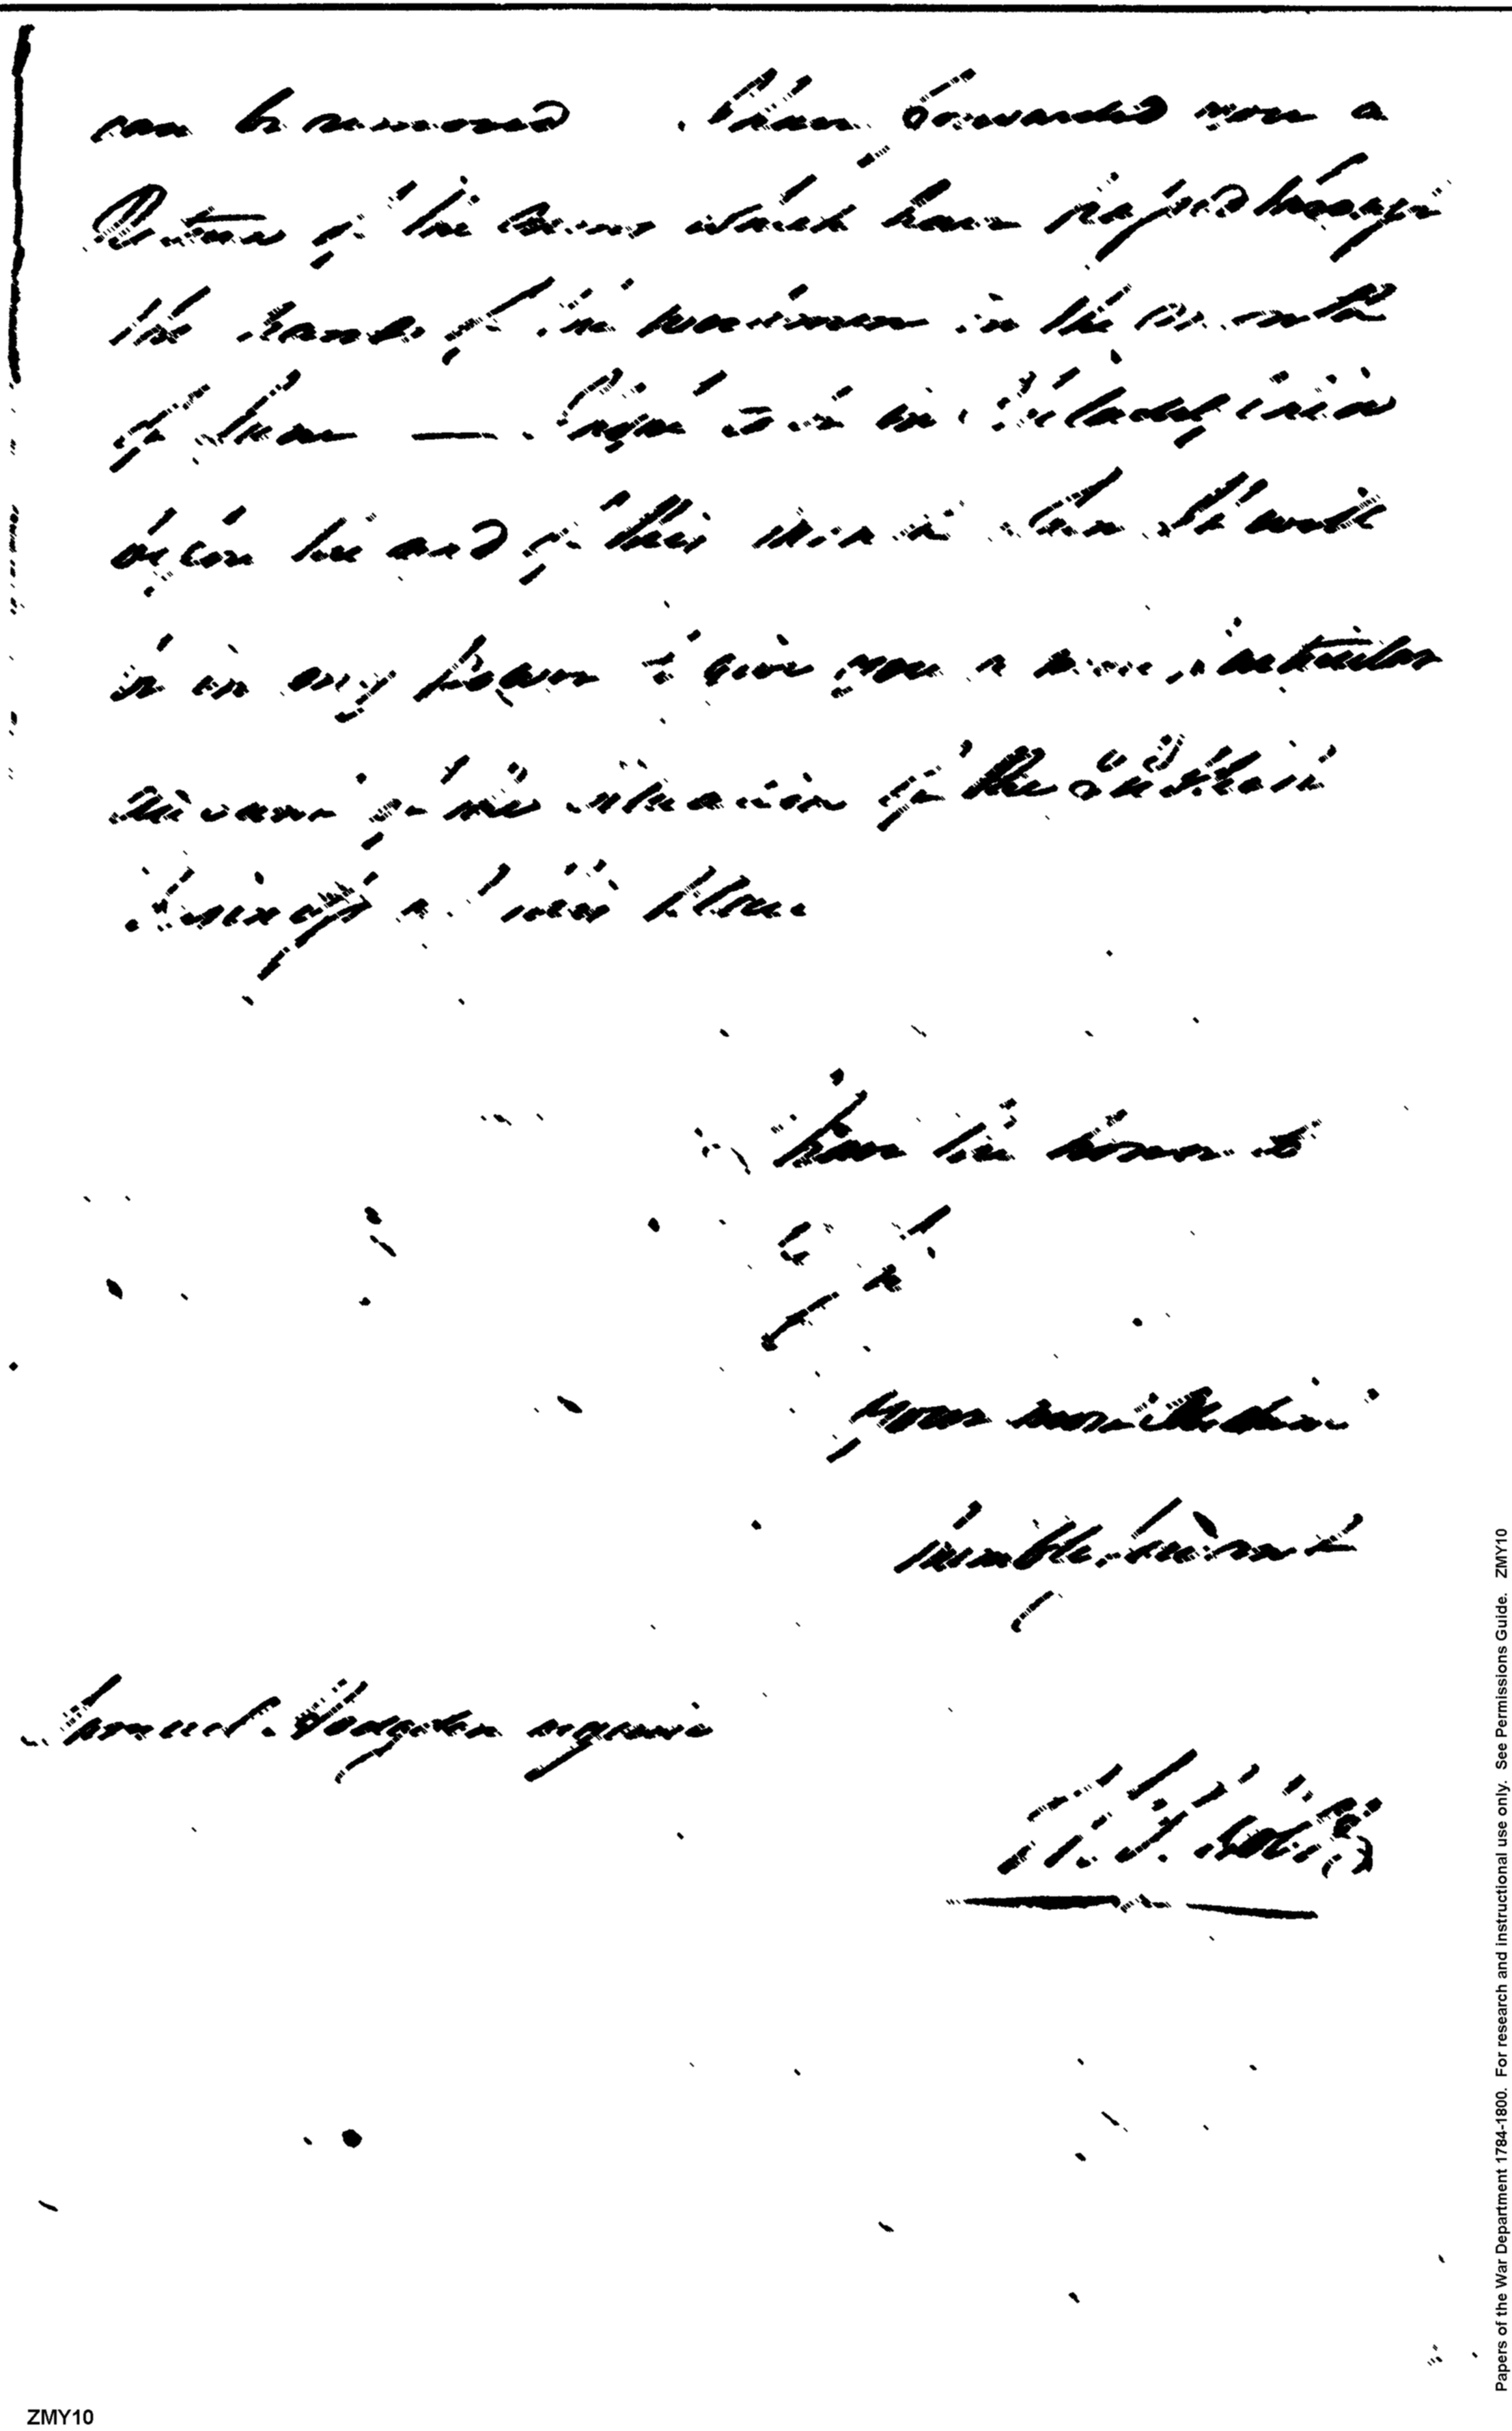 can be removed I have forwarded you a
Return of the Arms which have passed through
the hands of the workmen in the month
of June — I expect to be in Philadelphia
before the end of this month when it will
be in my power to give you a more particular
account of the situation of the Public
at this place
I have the honor to
be
your most Obedient
humble servant
Samuel Hodgdon esquire
Papers of the War Department 1784-1800. For research and instructional use only. See Permissions Guide. ZMY10
ZMY10